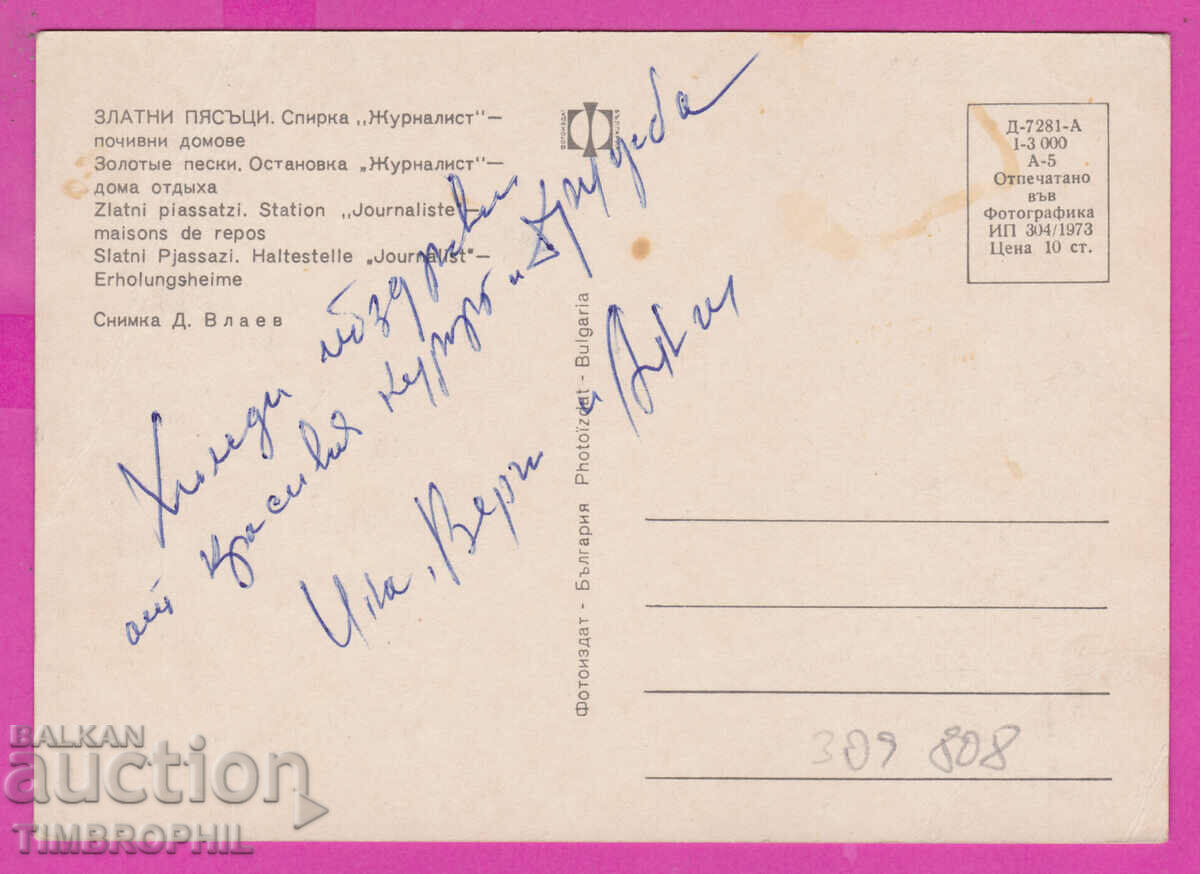 ЗЛАТНИ ПЯСЪЦИ. Спирка ,,Журналист"—
почивни домове
Золотые пески. Остановка „Журналист"—
дома отдыха
Zlatni piassatzi. Station ,,Journaliste"—
maisons de repos
Slatni Pjassazi. Haltestelle „Journalist"—
Erholungsheime
Снимка Д. Влаев
ФОТОИЗДАТ
БЪЛГАРИЯ
Д-7281-А
I-3 000
А-5
Отпечатано
във
Фотографика
ИП 304/1973
Цена 10 ст.
Хиляди поздрави
от красивия курорт и Дружба
Ина, Верги и
Фотоиздат - България Photoïzdat - Bulgaria
309 808
BALKAN
auction
TIMBROPHIL